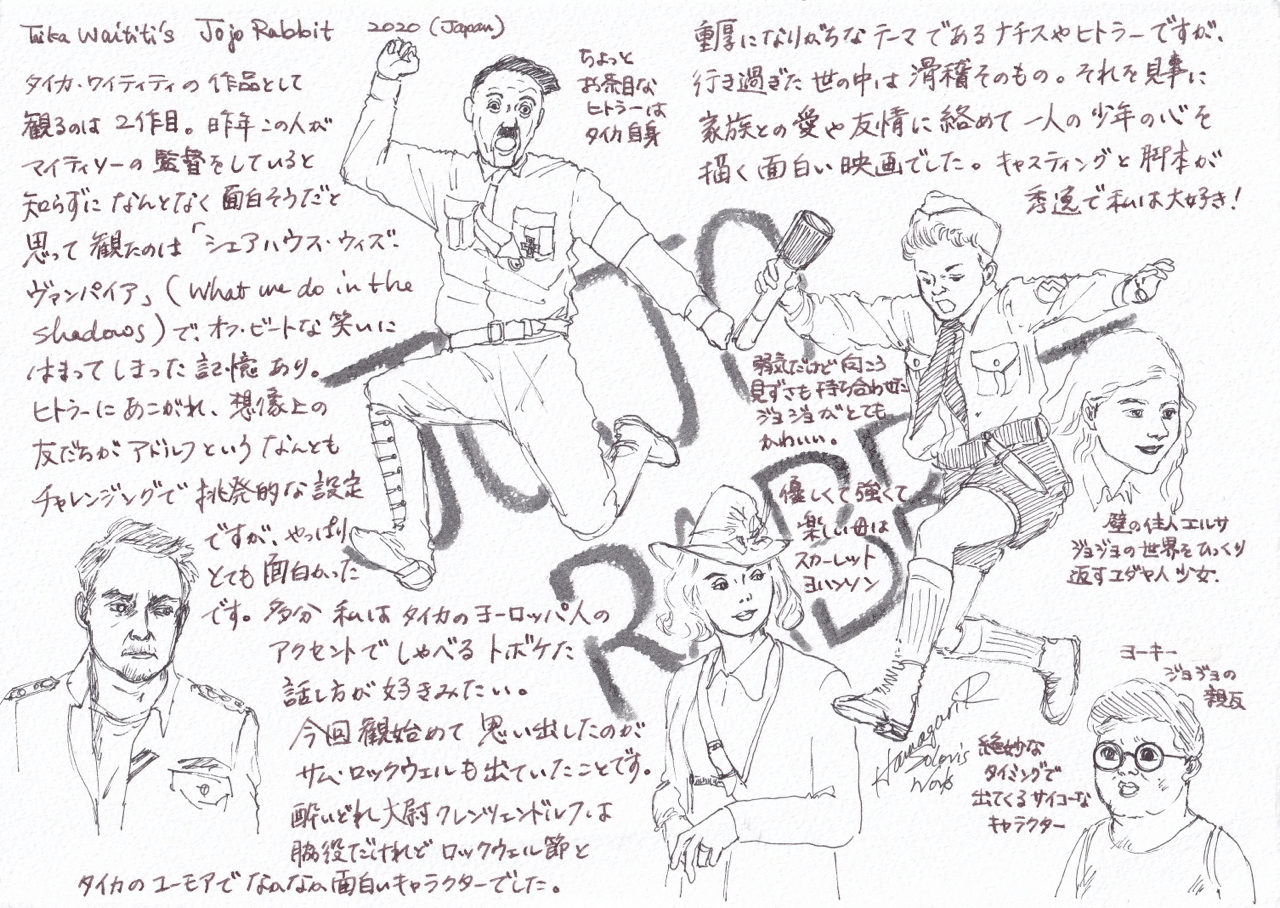 Taika Waititi's Jojo Rabbit 2020 (Japan)
タイカ・ワイティティの作品として
観るのは2作目。昨年この人が
マイティソーの監督をしていると
知らずになんとなく面白そうだと
思って観たのは「シェアハウス・ウィズ・
ヴァンパイア」(What we do in the
shadows)で、オフ・ビートな笑いに
はまってしまった記憶あり。
ヒトラーにあこがれ、想像上の
友だちがアドルフというなんとも
チャレンジングで挑発的な設定
ですが、やっぱり
とても面白かった
です。多分私はタイカのヨーロッパ人の
アクセントでしゃべるトボケた
話し方が好きみたい。
今回観始めて思い出したのが
サム・ロックウェルも出ていたことです。
酔いどれ大尉クレンツェンドルフは
脇役だけれどロックウェル節と
タイカのユーモアでなかなか面白いキャラクターでした。
ちょっと
お茶目な
ヒトラーは
タイカ自身
重厚になりがちなテーマであるナチスやヒトラーですが、
行き過ぎた世の中は滑稽そのもの。それを見事に
家族との愛や友情に絡めて一人の少年の心を
描く面白い映画でした。キャスティングと脚本が
秀逸で私は大好き!
JOJO
RABBIT
弱気だけど向こう
見ずさも持ち合わせた
ジョジョがとても
かわいい。
優しくて強くて
楽しい母は
スカーレット
ヨハンソン
壁の住人エルサ
ジョジョの世界をひっくり
返すユダヤ人少女.
ヨーキー
ジョジョの
親友
絶妙な
タイミングで
出てくるサイコーな
キャラクター
Solaris
Work